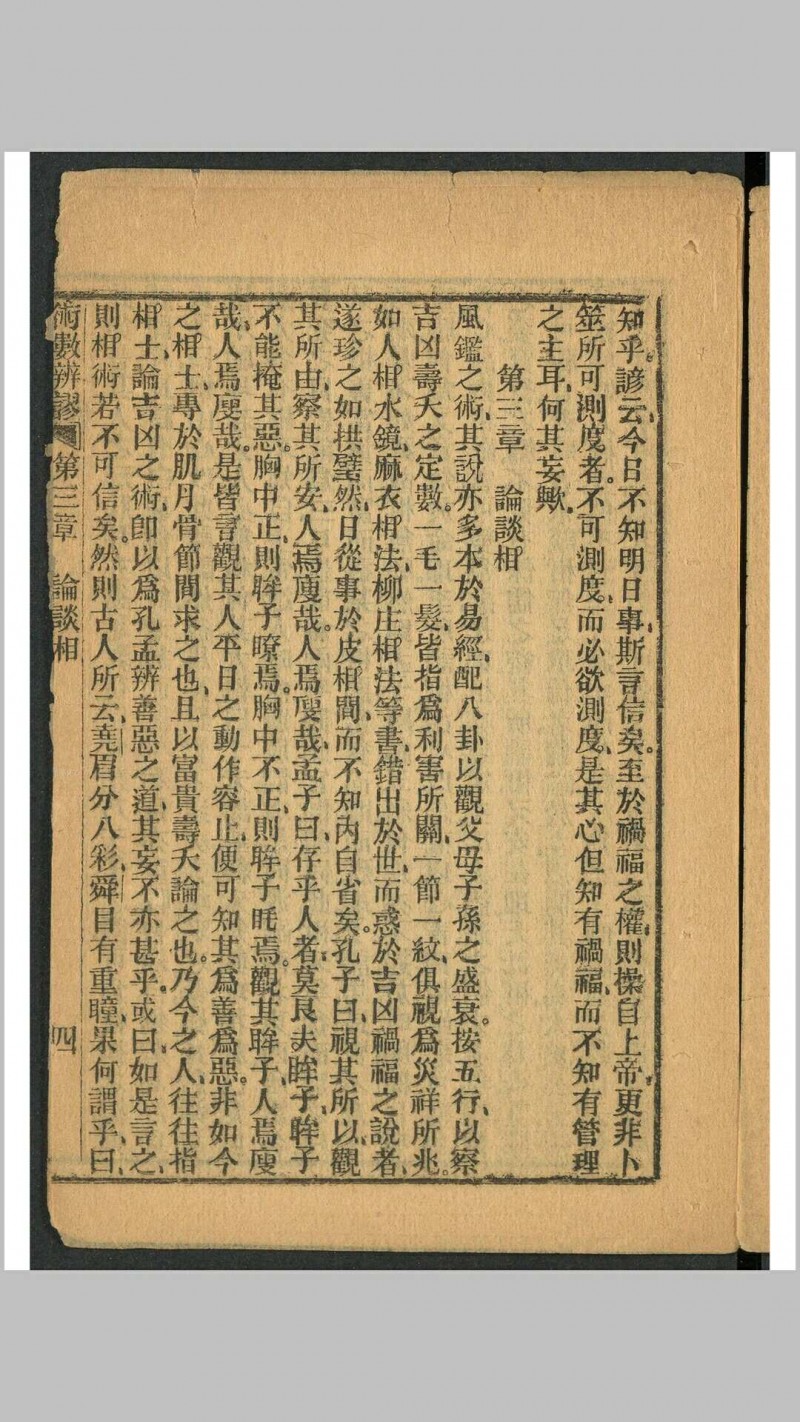 知乎。諺云、今日不知明日事、斯言信矣。至於禍福之權、則操自上帝、更非卜
筮所可測度者。不可測度、而必欲測度、是其心但知有禍福、而不知有管理
之主耳、何其妄歟。
第三章　論談相
風鑑之術、其說亦多本於易經、配八卦以觀父母子孫之盛衰。按五行、以察
吉凶壽夭之定數。一毛一髮、皆指爲利害所關、一節一紋、俱視爲災祥所兆。
如人相水鏡、麻衣相法、柳庄相法等書、錯出於世、而惑於吉凶禍福之說者、
遂珍之如拱璧然、日從事於皮相間、而不知內自省矣。孔子曰、視其所以、觀
其所由、察其所安、人焉廋哉。人焉廋哉、孟子曰、存乎人者、莫良夫眸子、眸子
不能掩其惡。胸中正、則眸子瞭焉。胸中不正、則眸子眊焉。觀其眸子、人焉廋
哉、人焉廋哉。是皆言觀其人平日之動作容止、便可知其爲善爲惡。非如今
之相士、專於肌月骨節間求之也、且以富貴壽夭論之也。乃今之人、往往指
相士、論吉凶之術、卽以爲孔孟辨善惡之道、其妄不亦甚乎。或曰、如是言之、
則相術若不可信矣。然則古人所云、堯眉分八彩、舜目有重瞳、果何謂乎、曰、
術數辨謬　第三章　論談相　四